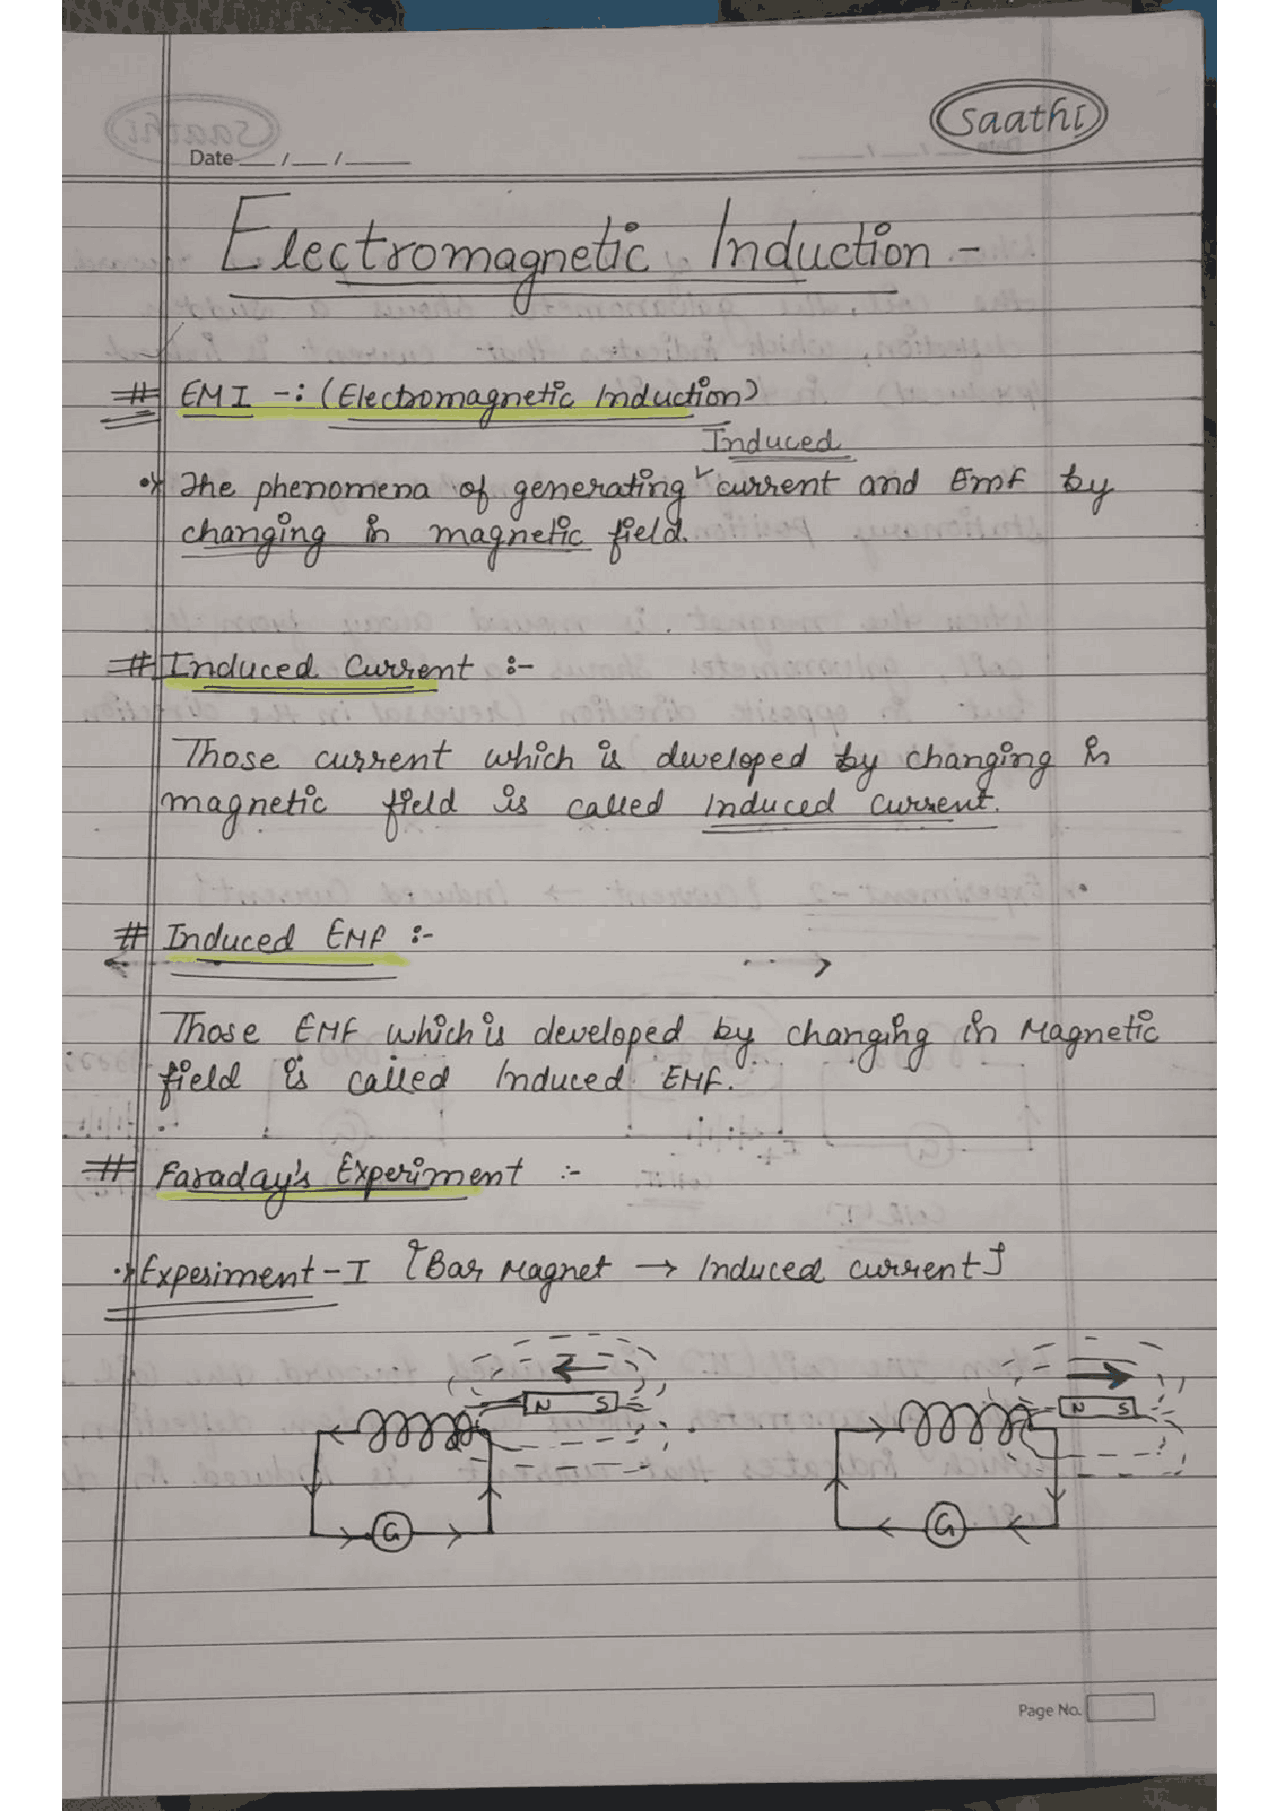 Saathi
Date __/__/____
Electromagnetic Induction -
# EMI -: (Electromagnetic Induction)
Induced
The phenomena of generating current and Emf by
changing in magnetic field.
# Induced Current :-
Those current which is developed by changing in
magnetic field is called Induced Current.
# Induced EMF :-
Those EMF which is developed by changing in Magnetic
field is called Induced EMF.
# Faraday's Experiment :-
Experiment - I [Bar Magnet → Induced current]
N S
N S
G
G
Page No.